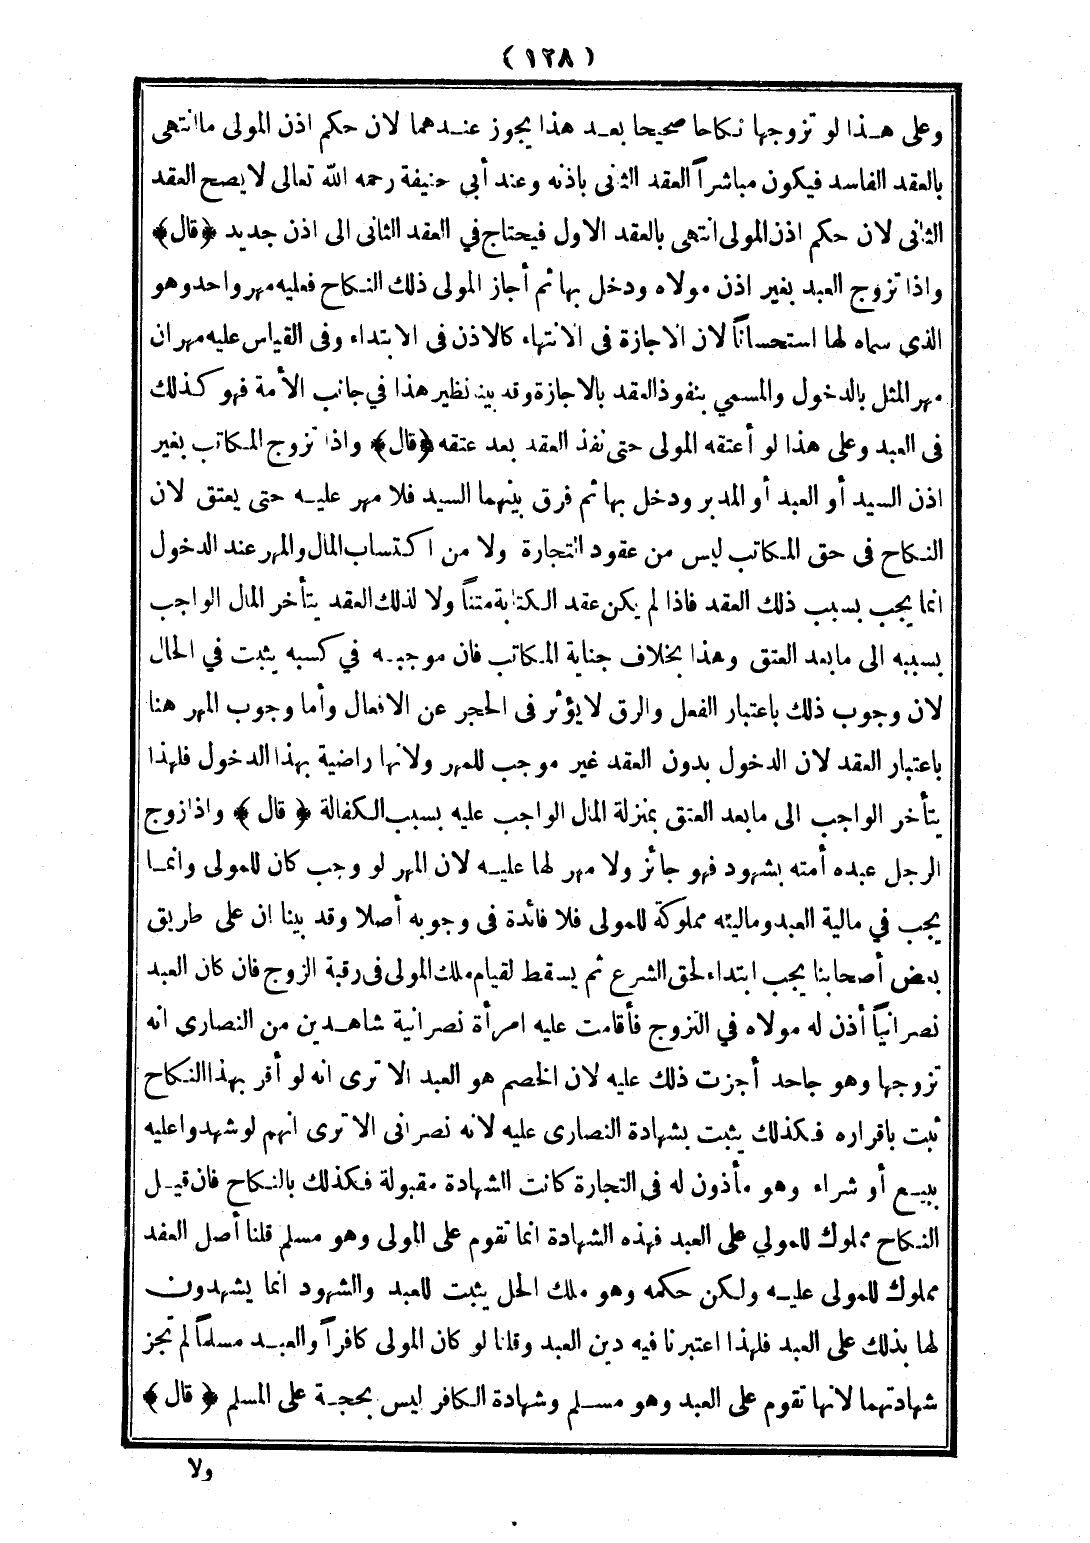 ( ١٢٨ )
وعلى هذا لو تزوجها نكاحا صحيحا بعد هذا يجوز عندهما لان حكم اذن المولى ماانتهى
بالعقد الفاسد فيكون مباشراً العقد الثانى باذنه وعند أبي حنيفة رحمه الله تعالى لا يصح العقد
الثانى لان حكم اذن المولى انتهى بالعقد الاول فيحتاج في العقد الثانى الى اذن جديد ﴿قال﴾
واذا تزوج العبد بغير اذن مولاه ودخل بها ثم أجاز المولى ذلك النكاح فعليه مهر واحد وهو
الذي سماه لها استحساناً لان الاجازة فى الانتهاء كالاذن فى الابتداء وفى القياس عليه مهران
مهر المثل بالدخول والمسمي بنفوذ العقد بالاجازة وقد بينا نظير هذا في جانب الأمة فهو كذلك
فى العبد وعلى هذا لو أعتقه المولى حتى نفذ العقد بعد عتقه ﴿قال﴾ واذا تزوج المكاتب بغير
اذن السيد أو العبد أو المدبر ودخل بها ثم فرق بينهما السيد فلا مهر عليه حتى يعتق لان
النكاح فى حق المكاتب ليس من عقود التجارة ولا من اكتساب المال والمهر عند الدخول
انما يجب بسبب ذلك العقد فاذا لم يكن عقد الكتابة متناً ولا لذلك العقد يتأخر المال الواجب
بسببه الى مابعد العتق وهذا بخلاف جناية المكاتب فان موجبه في كسبه يثبت في الحال
لان وجوب ذلك باعتبار الفعل والرق لا يؤثر فى الحجر عن الافعال وأما وجوب المهر هنا
باعتبار العقد لان الدخول بدون العقد غير موجب للمهر ولانها راضية بهذا الدخول فلهذا
يتأخر الواجب الى مابعد العتق بمنزلة المال الواجب عليه بسبب الكفالة ﴿ قال ﴾ واذا زوج
الرجل عبده أمته بشهود فهو جائز ولا مهر لها عليه لان المهر لو وجب كان للمولى وانما
يجب في مالية العبد وماليته مملوكة للمولى فلا فائدة فى وجوبه أصلا وقد بينا ان على طريق
بعض أصحابنا يجب ابتداء لحق الشرع ثم يسقط لقيام ملك المولى فى رقبة الزوج فان كان العبد
نصرانياً أذن له مولاه في التزوج فأقامت عليه امرأة نصرانية شاهدين من النصارى انه
تزوجها وهو جاحد أجزت ذلك عليه لان الخصم هو العبد الا ترى انه لو أقر بهذا النكاح
ثبت باقراره فكذلك يثبت بشهادة النصارى عليه لانه نصرانى الا ترى انهم لو شهدوا عليه
ببيع أو شراء وهو مأذون له فى التجارة كانت الشهادة مقبولة فكذلك بالنكاح فان قيل
النكاح مملوك للمولي على العبد فهذه الشهادة انما تقوم على المولى وهو مسلم قلنا أصل العقد
مملوك للمولى عليه ولكن حكمه وهو ملك الحل يثبت للعبد والشهود انما يشهدون
لها بذلك على العبد فلهذا اعتبرنا فيه دين العبد وقلنا لو كان المولى كافراً والعبد مسلماً لم تجز
شهادتهما لانها تقوم على العبد وهو مسلم وشهادة الكافر ليس بحجة على المسلم ﴿ قال ﴾
ولا